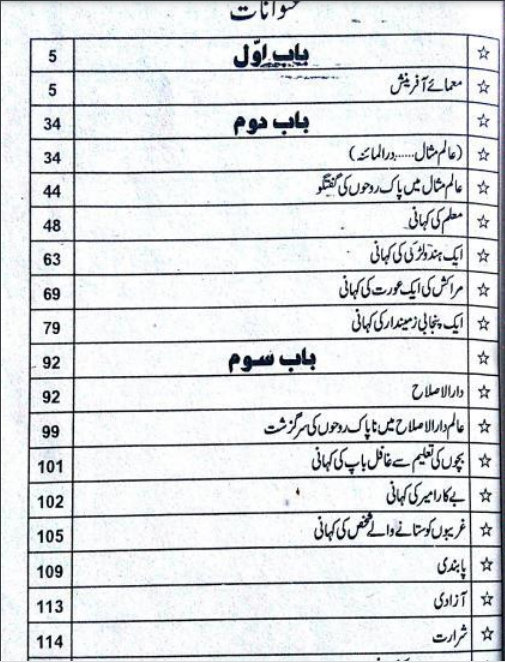 عنوانات
☆ باب اوّل 5
☆ معمائے آفرینش 5
☆ باب دوم 34
☆ (عالم مثال......ورالمائنہ) 34
☆ عالم مثال میں پاک روحوں کی گفتگو 44
☆ معلم کی کہانی 48
☆ ایک ہندو لڑکی کی کہانی 63
☆ مراکش کی ایک عورت کی کہانی 69
☆ ایک پنجابی زمیندار کی کہانی 79
☆ باب سوم 92
☆ دارالاصلاح 92
☆ عالم دارالاصلاح میں ناپاک روحوں کی سرگزشت 99
☆ بچوں کی تعلیم سے غافل باپ کی کہانی 101
☆ بے کار امیر کی کہانی 102
☆ غریبوں کو ستانے والے شخص کی کہانی 105
☆ پابندی 109
☆ آزادی 113
☆ شرارت 114